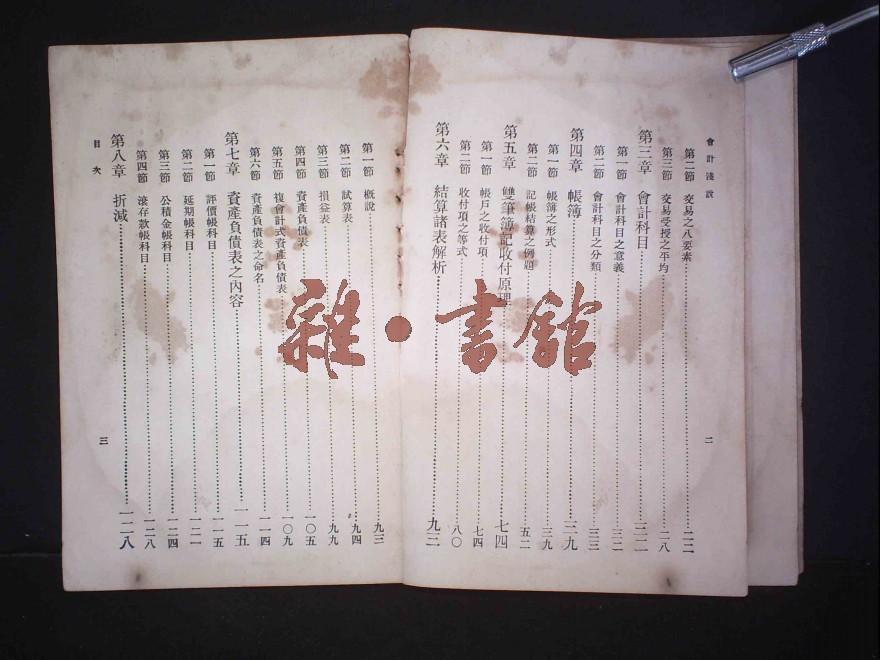 會計淺說
第二節 交易之八要素 二二
第三節 交易受授之平均 二八
第三章 會計科目 三二
第一節 會計科目之意義 三二
第二節 會計科目之分類 三三
第四章 帳簿 三九
第一節 帳簿之形式 三九
第二節 記帳結算之例題 五二
第五章 雙筆簿記收付原理 七四
第一節 帳戶之收付項 七四
第二節 收付項之等式 八〇
第六章 結算諸表解析 九三
二
第一節 概說 九三
第二節 試算表 九四
第三節 損益表 九九
第四節 資產負債表 一〇五
第五節 複會計式資產負債表 一〇九
第六節 資產負債表之命名 一一四
第七章 資產負債表之內容 一一五
第一節 評價帳科目 一一五
第二節 延期帳科目 一二一
第三節 公積金帳科目 一二四
第四節 滾存款帳科目 一二八
第八章 折減 一二八
目次
三
雜·書館